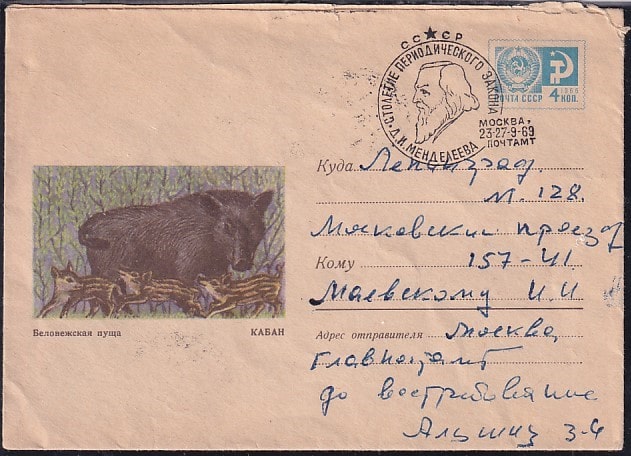 СССР
СТОЛЕТИЕ ПЕРИОДИЧЕСКОГО ЗАКОНА
Д.И. МЕНДЕЛЕЕВА
МОСКВА,
23-27-9-69
ПОЧТАМТ
1966
ПОЧТА СССР 4 КОП.
Куда Ленинград
М. 128.
Московский проезд
Кому 157-41
Маевскому И. И
Адрес отправителя Москва,
Главпочтамт
до востребования
З-4
Беловежская пуща КАБАН